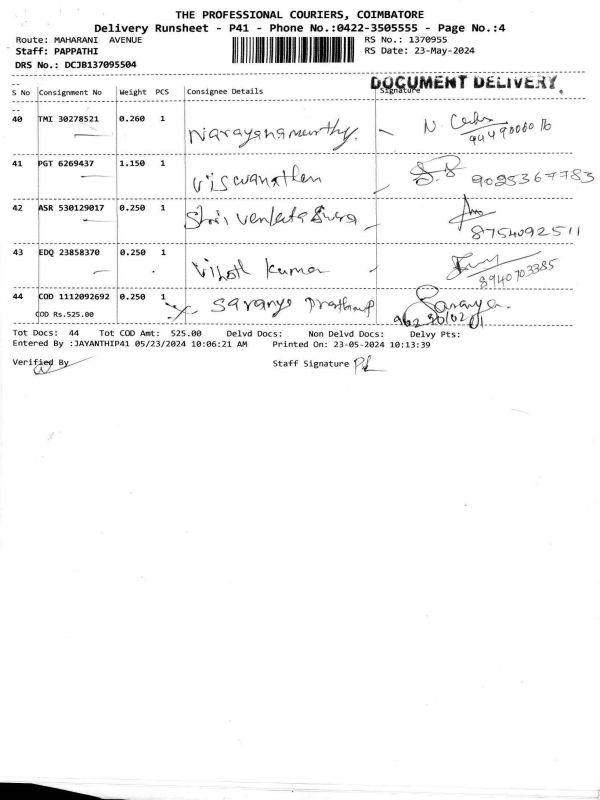 THE PROFESSIONAL COURIERS, COIMBATORE
Delivery Runsheet - P41 - Phone No.:0422-3505555 - Page No.:4
Route: MAHARANI AVENUE RS No.: 1370955
Staff: PAPPATHI RS Date: 23-May-2024
DRS No.: DCJB137095504
DOCUMENT DELIVERY
S No Consignment No Weight PCS Consignee Details Signature
40 TMI 30278521 0.260 1 Narayanamurthy.
41 PGT 6269437 1.150 1 Viswanathan 9025367783
42 ASR 530129017 0.250 1 8754092511
43 EDQ 23858370 0.250 1 Kumar 8940703385
44 COD 1112092692 0.250 1 Saranya Saranya.
COD Rs.525.00
Tot Docs: 44 Tot COD Amt: 525.00 Delvd Docs: Non Delvd Docs: Delvy Pts:
Entered By :JAYANTHIP41 05/23/2024 10:06:21 AM Printed On: 23-05-2024 10:13:39
Verified By Staff Signature